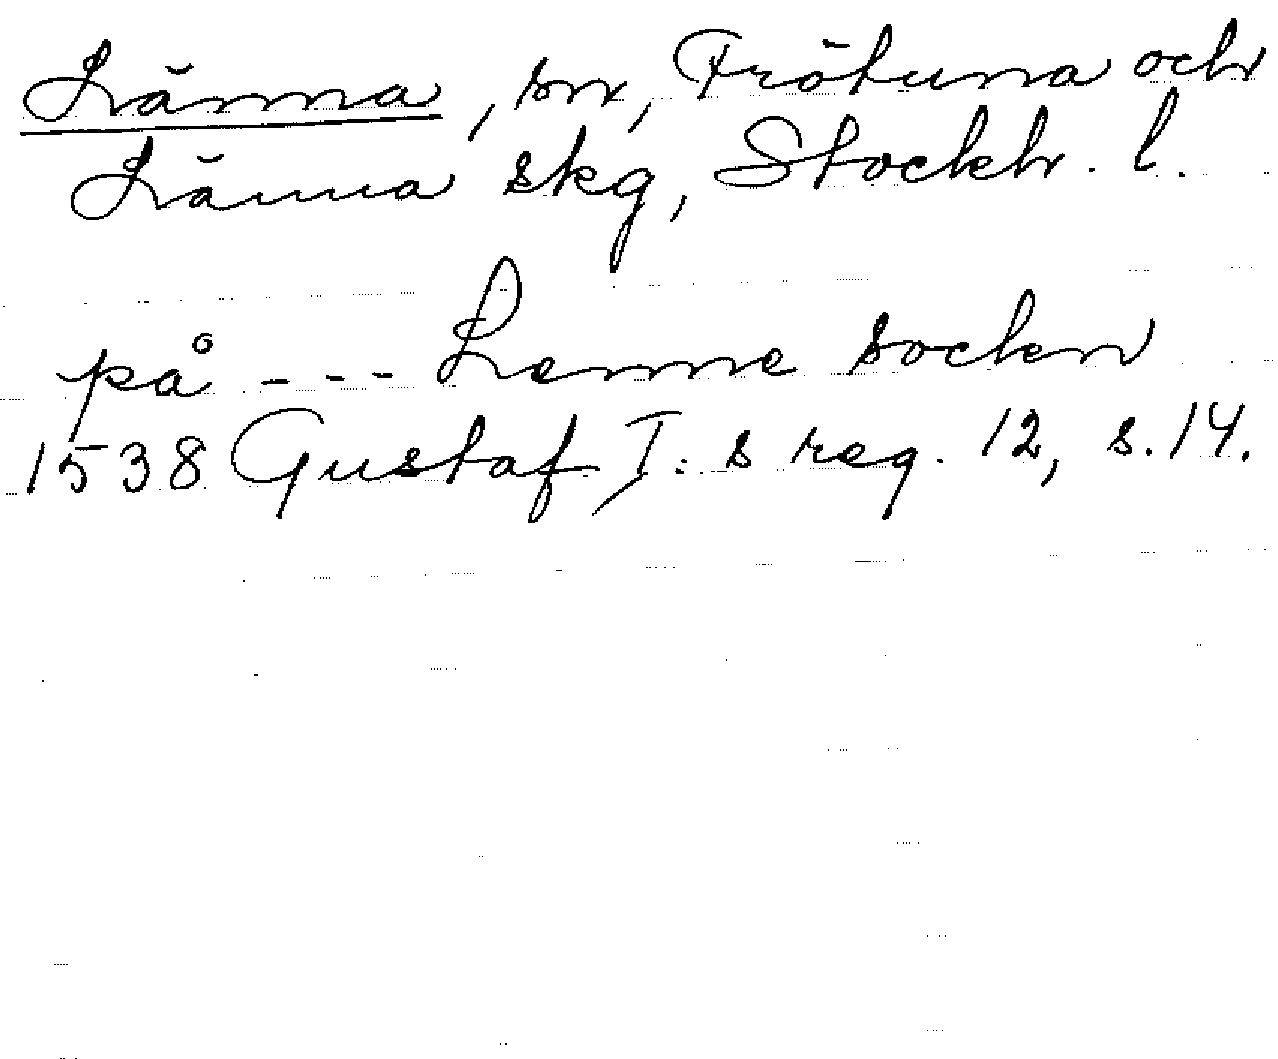 Länna, sn, Frötuna och
Länna skg, Stockh. l.
på --- Lenne sockn
1538 Gustaf I:s reg. 12, s. 14.